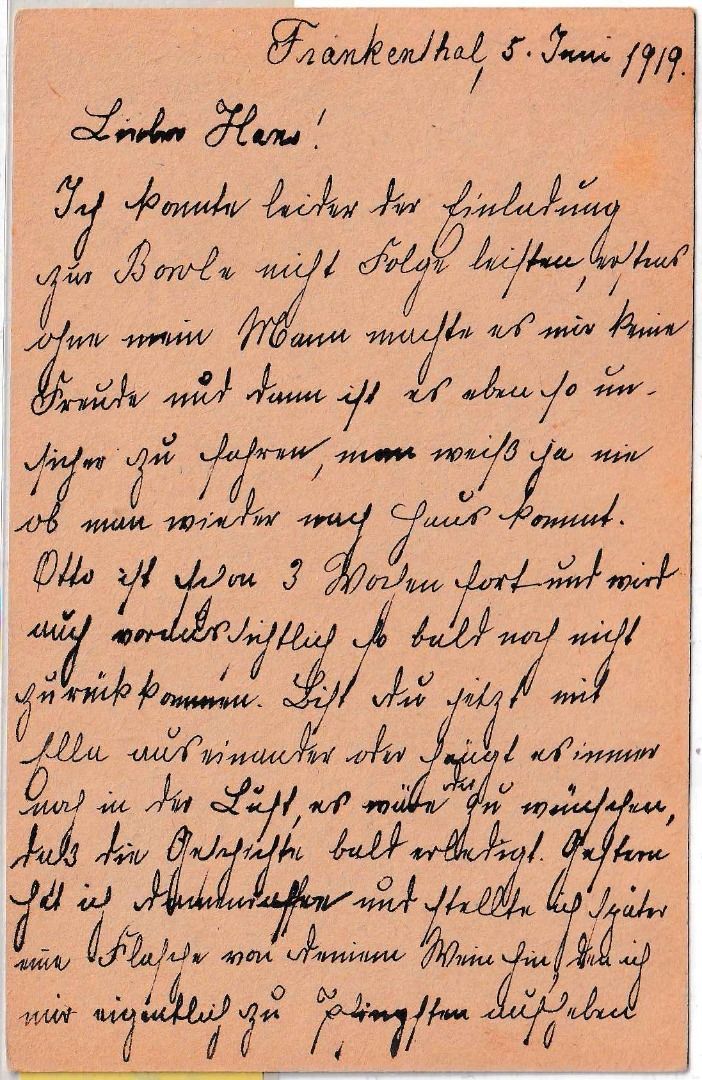 Frankenthal, 5. Juni 1919.
Lieber Hans!
Ich konnte leider der Einladung
zur Bowle nicht Folge leisten, erstens
ohne mein Mann machte es mir keine
Freude und dann ist es eben so un-
sicher zu fahren, man weiß ja nie
ob man wieder nach Haus kommt.
Otto ist schon 3 Wochen fort und wird
auch voraussichtlich so bald noch nicht
zurückkommen. Bist du jetzt mit
Ella auseinander oder hängt es immer
noch in der Luft, es wäre zu wünschen,
daß die Geschichte bald erledigt. Gestern
hat ich und stellte ich später
eine Flasche von deinem Wein hin, den ich
mir eigentlich zu Pfingsten aufheben